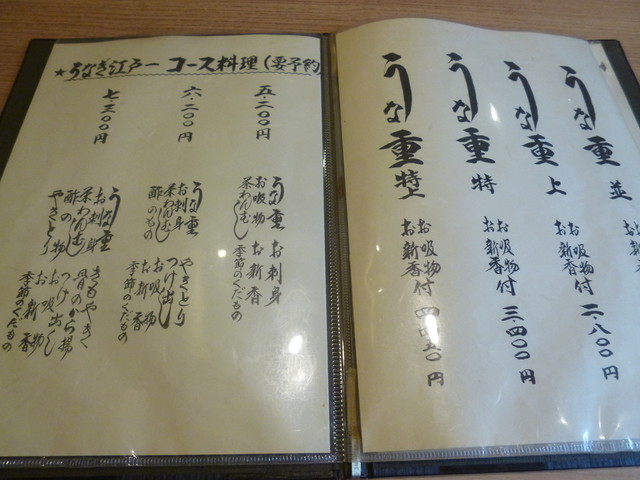 ★うなぎ江戸一 コース料理(要予約
五.二〇〇円
うな重 お刺身
お吸物 お新香
茶わんむし 季節のくだもの
六.二〇〇円
うな重 やきとり
お刺身 つけ出し
茶わんむし お吸物
酢のもの お新香
季節のくだもの
七.三〇〇円
うな重 きもやき
お刺身 骨のから揚
茶わんむし つけ出し
酢の物 お吸物
やきとり お新香
季節のくだもの
うな重 並
うな重 上
お吸物
お新香付 二.八〇〇円
うな重 特
お吸物
お新香付 三.四〇〇円
うな重 特上
お吸物
お新香付 四.四五〇円